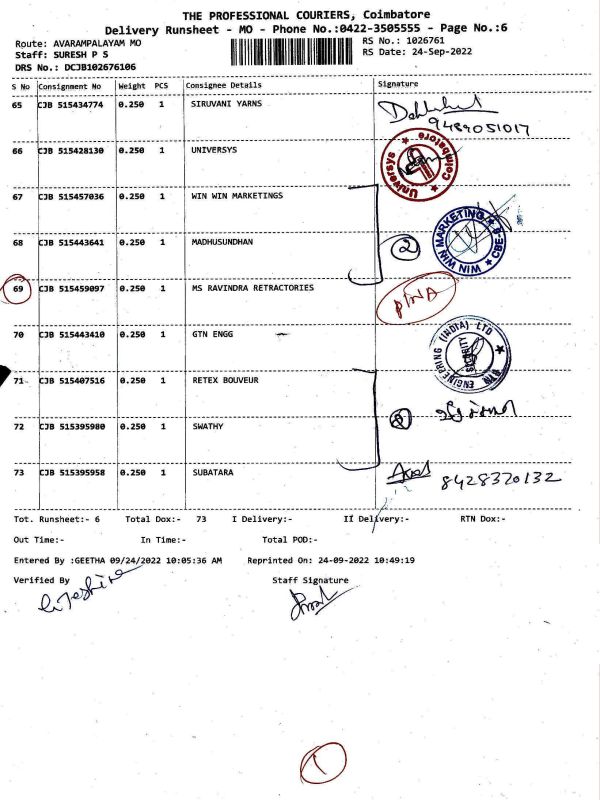 THE PROFESSIONAL COURIERS, Coimbatore
Delivery Runsheet - MO - Phone No.:0422-3505555 - Page No.:6
Route: AVARAMPALAYAM MO
RS No.: 1026761
Staff: SURESH P S
RS Date: 24-Sep-2022
DRS No.: DCJB102676106
S No Consignment No Weight PCS Consignee Details Signature
65 CJB 515434774 0.250 1 SIRUVANI YARNS
9489051017
66 CJB 515428130 0.250 1 UNIVERSYS
Universys ★ Coimbatore ★
67 CJB 515457036 0.250 1 WIN WIN MARKETINGS
68 CJB 515443641 0.250 1 MADHUSUNDHAN
2
WIN WIN MARKETING ★ CBE-6 ★
69 CJB 515459097 0.250 1 MS RAVINDRA RETRACTORIES
PNA
70 CJB 515443410 0.250 1 GTN ENGG
GTN ENGINEERING (INDIA) LTD ★
SECURITY
71 CJB 515407516 0.250 1 RETEX BOUVEUR
72 CJB 515395980 0.250 1 SWATHY
73 CJB 515395958 0.250 1 SUBATARA
8428320132
Tot. Runsheet:- 6 Total Dox:- 73 I Delivery:- II Delivery:- RTN Dox:-
Out Time:- In Time:- Total POD:-
Entered By :GEETHA 09/24/2022 10:05:36 AM Reprinted On: 24-09-2022 10:49:19
Verified By Staff Signature
1